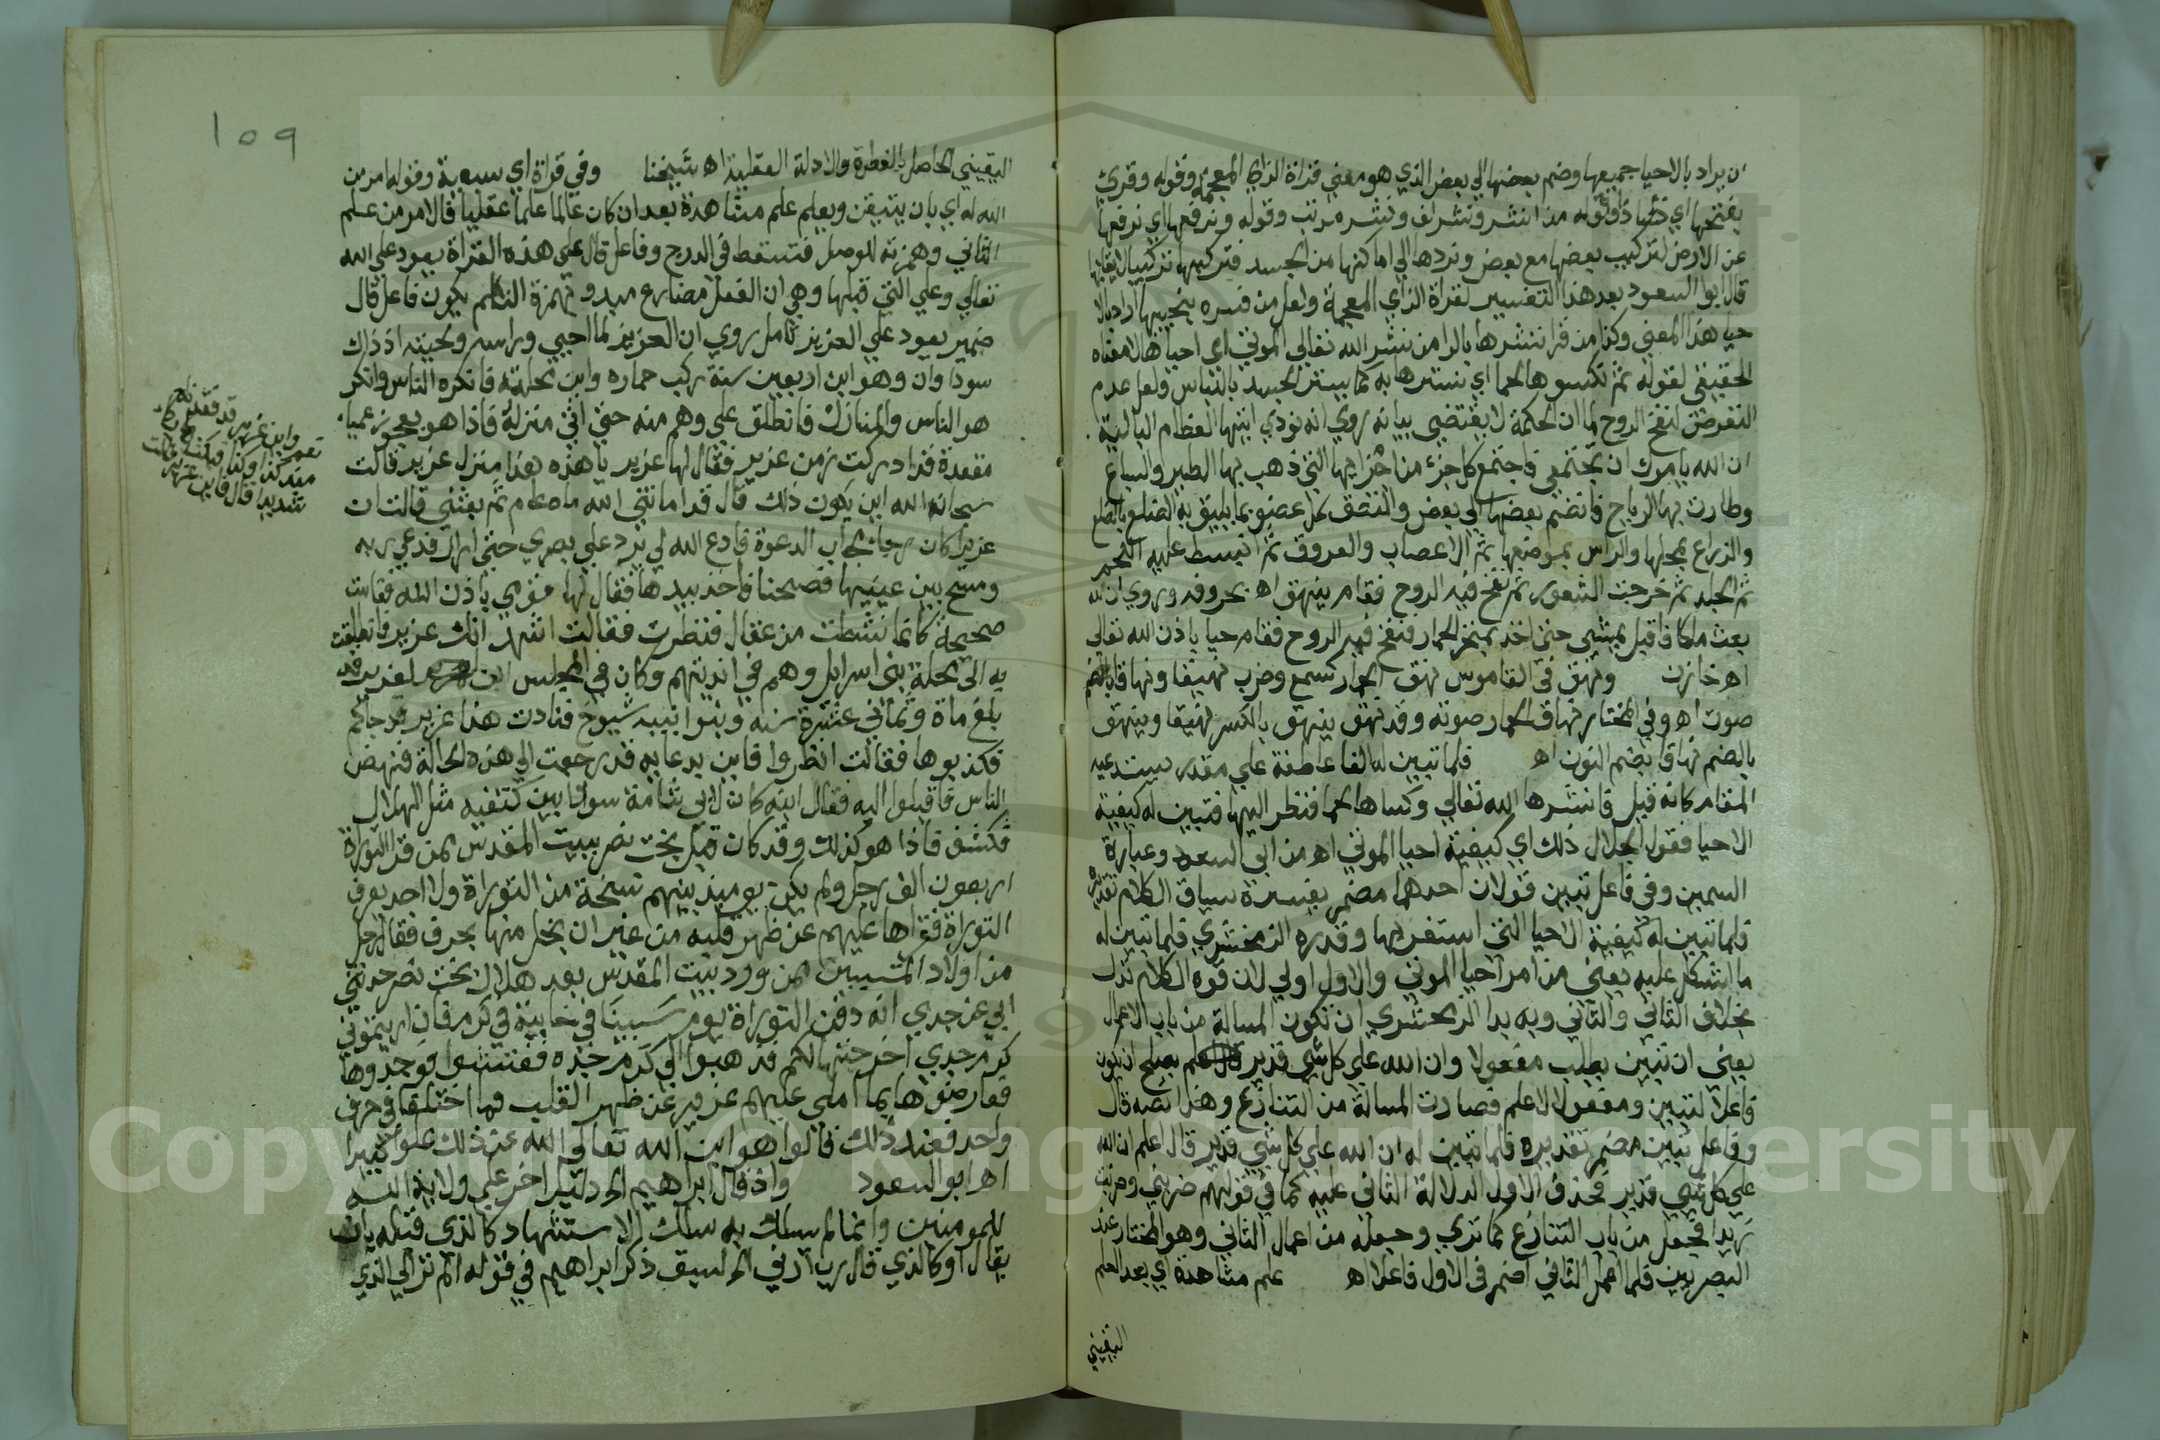 ان يراد بالاحيا جميعها وضم بعضها الي بعض الذي هو معني قراة الزاي المعجمة وقوله وقري
بفتحها اي وقوله من انشر ونشر لف ونشر مرتب وقوله ونرفعها اي نرفعها
عن الارض لتركيب بعضها مع بعض ونردها الي اماكنها من الجسد فتركبها تركيبا لايقا بها
قال ابو السعود بعد هذا التفسير لقراة الزاي المعجمة ولعل من فسره بنحييها اراد بالا
حيا هذا المعني وكذا من قرا ننشرها بالرا من نشر الله تعالي الموتي اي احياها لا معناه
الحقيقي لقوله ثم نكسوها لحما اي نسترها به كما يستر الجسد بالباس ولعل عدم
التعرض لنفخ الروح لما ان الحكمة لا يقتضي بيانه روي انه نودي ايتها العظام البالية
ان الله يامرك ان تجتمعي فاجتمع كل جزء من اجزايها التي ذهب بها الطير والسباع
وطارت بها الرياح فانضم بعضها الي بعض والتصق كل عضو بما يليق به الضلع بالضلع
والذراع بمحلها والراس بموضعها ثم الاعصاب والعروق ثم انبسط عليه اللحم
ثم الجلد ثم خرجت الشعور ثم نفخ فيه الروح فقام ينهق اه بحروفه وروي ان الله
بعث ملكا فاقبل يمشي حتى اخذ بمنخر الحمار فنفخ فيه الروح فقام حيا باذن الله تعالي
اه خازن ونهق في القاموس نهق الحمار كسمع وضرب نهيقا ونهاقا بالضم
صوت اه وفي المختار نهاق الحمار صوته وقد نهق ينهق بالكسر نهيقا وينهق
بالضم نهاقا بضم النون اه فلما تبين له الفا عاطفة علي مقدر يستدعيه
المقام كانه قيل فانشرها الله تعالي وكساها لحما فنظر اليها فتبين له كيفية
الاحيا فقول الجلال ذلك اي كيفية احيا الموتي اه من ابي السعود وعبارة
السمين وفي فاعل تبين قولان احدهما مضمر يفسره سياق الكلام تقديره
فلما تبين له كيفية الاحيا التي استغربها وقدره الزمخشري فلما تبين له
ما اشكل عليه يعني من امر احيا الموتي والاول اولي لان قوة الكلام تدل
بخلاف الثاني والثاني وبه بدا الزمخشري ان تكون المسالة من باب الاعمال
يعني ان تبين يطلب مفعولا وان الله علي كل شي قدير يصلح ان يكون
فاعلا لتبين ومفعولا لاعلم فصارت المسالة من التنازع وهذا نصه قال
وفاعل تبين مضمر تقديره فلما تبين له ان الله علي كل شي قدير قال اعلم ان الله
علي كل شي قدير فحذف الاول لدلالة الثاني عليه كما في قولهم ضربني وضربت
زيدا فجعل من باب التنازع كما تري وجعله من اعمال الثاني وهو المختار عند
البصريين فلما اعمل الثاني اضمر في الاول فاعلا اه علم مشاهدة اي بعد العلم
اليقيني
١٥٩
اليقيني الحاصل بالفطرة والادلة العقلية اه شيخنا وفي قراة اي سبعية وقوله امر من
الله له اي بان يتيقن ويعلم علم مشاهدة بعد ان كان عالما علما عقليا فالامر من علم
الثاني وهمزته للوصل فتسقط في الدرج وفاعل قال علي هذه القراة يعود علي الله
تعالي وعلي التي قبلها وهي ان الفعل مضارع مبدو بهمزة التكلم يكون فاعل قال
ضمير يعود علي العزير تامل روي ان العزير لما احيي وراسه ولحيته اذ ذاك
سوداوان وهو ابن اربعين سنة ركب حماره واتي محلته فانكره الناس وانكر
هو الناس والمنازل فانطلق علي وهم منه حتي اتي منزله فاذا هو بعجوز عميا
مقعدة قد ادركت زمن عزير فقال لها عزير يا هذه هذا منزل عزير قالت
نعم واين عزير قد فقدناه
منذ كذا وكذا فبكت بكاء
شديدا قال فاني عزير قالت
سبحان الله اين يكون ذلك قال قد اماتني الله ماه عام ثم بعثني قالت ان
عزيرا كان رجلا مجاب الدعوة فادع الله لي يرد علي بصري حتي اراك فدعي ربه
ومسح بين عينيها فصحتا فاخذ بيدها فقال لها قومي باذن الله فقامت
صحيحة كانما نشطت من عقال فنظرت فقالت اشهد انك عزير فانطلقت
به الي محلة بني اسرايل وهم في انديتهم وكان في المجلس ابن لعزير قد
بلغ ماة وثماني عشرة سنه وبنوا بنيه شيوخ فنادت هذا عزير قد جاكم
فكذبوها فقالت انظروا فاني بدعايه قد رجعت الي هذه الحالة فنهض
الناس فاقبلوا اليه فقال ابنه كان لابي شامة سودا بين كتفيه مثل الهلال
فكشف فاذا هو كذلك وقد كان قتل بخت نصر ببيت المقدس ممن قرا التوراة
اربعون الف رجل ولم يكن يوميذ بينهم نسخة من التوراة ولا احد يعرف
التوراة فقراها عليهم عن ظهر قلبه من غير ان يخل منها بحرف فقال رجل
من اولاد المسبيين ممن ورد بيت المقدس بعد هلاك بخت نصر حدثني
ابي عن جدي انه دفن التوراة يوم سبينا في خابية في كرم فان اريتموني
كرم جدي اخرجتها لكم فذهبوا الي كرم جده ففتشوا فوجدوها
فعارضوها بما املي عليهم عزير عن ظهر القلب فما اختلفا في حرف
واحد فعند ذلك قالوا هو ابن الله تعالي الله عن ذلك علوا كبيرا
اه ابو السعود واذ قال ابراهيم الخ دليل اخر علي ولاية الله
للمومنين وانما لم يسلك به مسلك الاستشهاد كالذي قبله بان
يقال او كالذي قال رب ارني الخ لسبق ذكر ابراهيم في قوله الم تر الي الذي